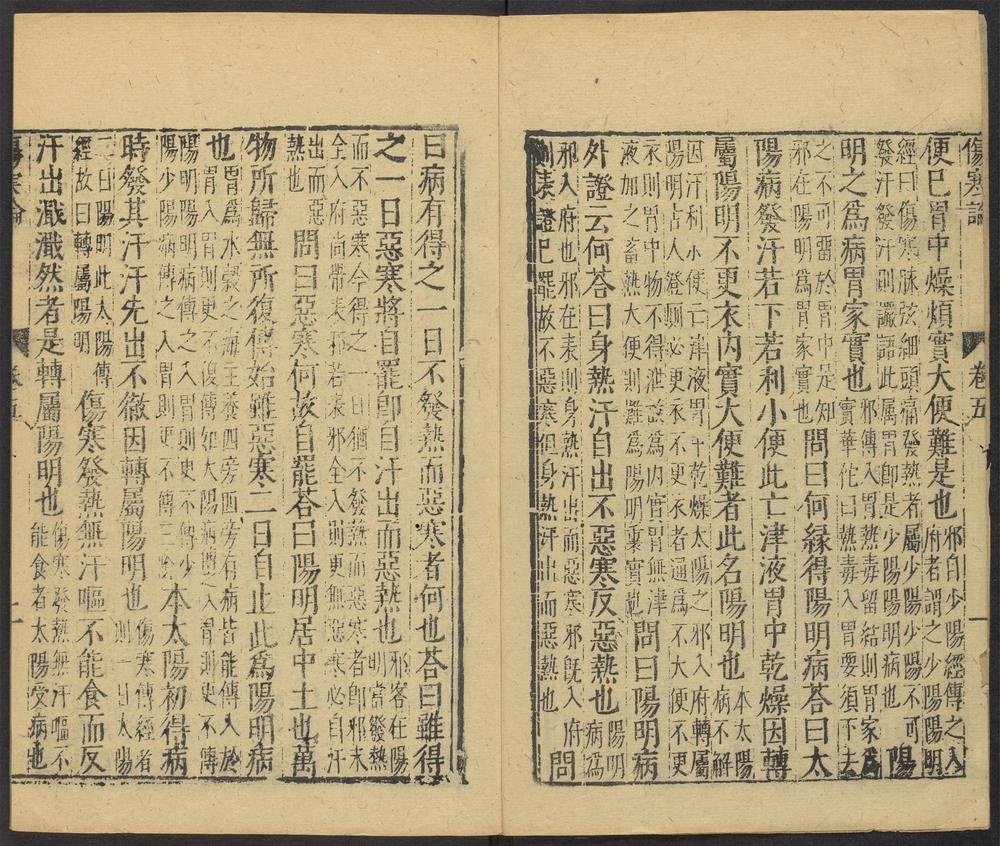 傷寒論
卷五
一
便已胃中燥煩實大便難是也邪自少陽經傳之入府者謂之少陽陽明
經曰傷寒脉弦細頭痛發熱者屬少陽少陽不可
發汗發汗則讝語此屬胃即是少陽陽明
陽
明之為病胃家實也邪傳入胃熱毒留結則胃家為實華佗曰熱毒入胃要須下去
之不可留於胃中是知
邪在陽明為胃家實也
問曰何緣得陽明病荅曰太
陽病發汗若下若利小便此亡津液胃中乾燥因轉
屬陽明不更衣內實大便難者此名陽明也本太陽不解
因汗利小便亡津液胃中乾燥太陽之邪入府轉屬
陽明古人登厠必更衣不更衣者通為不大便不更
衣則胃中物不得泄故為內實胃無津
液加之畜熱大便則難為陽明裏實也
問曰陽明病
外證云何荅曰身熱汗自出不惡寒反惡熱也陽明病為
邪入府也邪在表則身熱汗出而惡寒邪既入府
則表證已罷故不惡寒但身熱汗出而惡熱也
問
曰病有得之一日不發熱而惡寒者何也荅曰雖得
之一日惡寒將自罷即自汗出而惡熱也邪客在陽明當發熱
而不惡寒今得之一日猶不發熱而惡寒者即邪未
全入府尚帶表邪若表邪全入則更無惡寒必自汗
出而惡
熱也
問曰惡寒何故自罷荅曰陽明居中土也萬
物所歸無所復傳始雖惡寒二日自止此為陽明病
也胃為水穀之海主養四旁四旁有病皆能傳入於
胃入胃則更不復傳如太陽病傳之入胃則更不傳
陽明陽明病傳之入胃則更不傳少
陽少陽病傳之入胃則更不傳三陰
本太陽初得病
時發其汗汗先出不徹因轉屬陽明也傷寒傳經者則一日太陽
二日陽明此太陽傳
經故曰轉屬陽明
傷寒發熱無汗嘔不能食而反
汗出濈濈然者是轉屬陽明也傷寒發熱無汗嘔不能食者太陽受病也
傷寒論
卷五
二